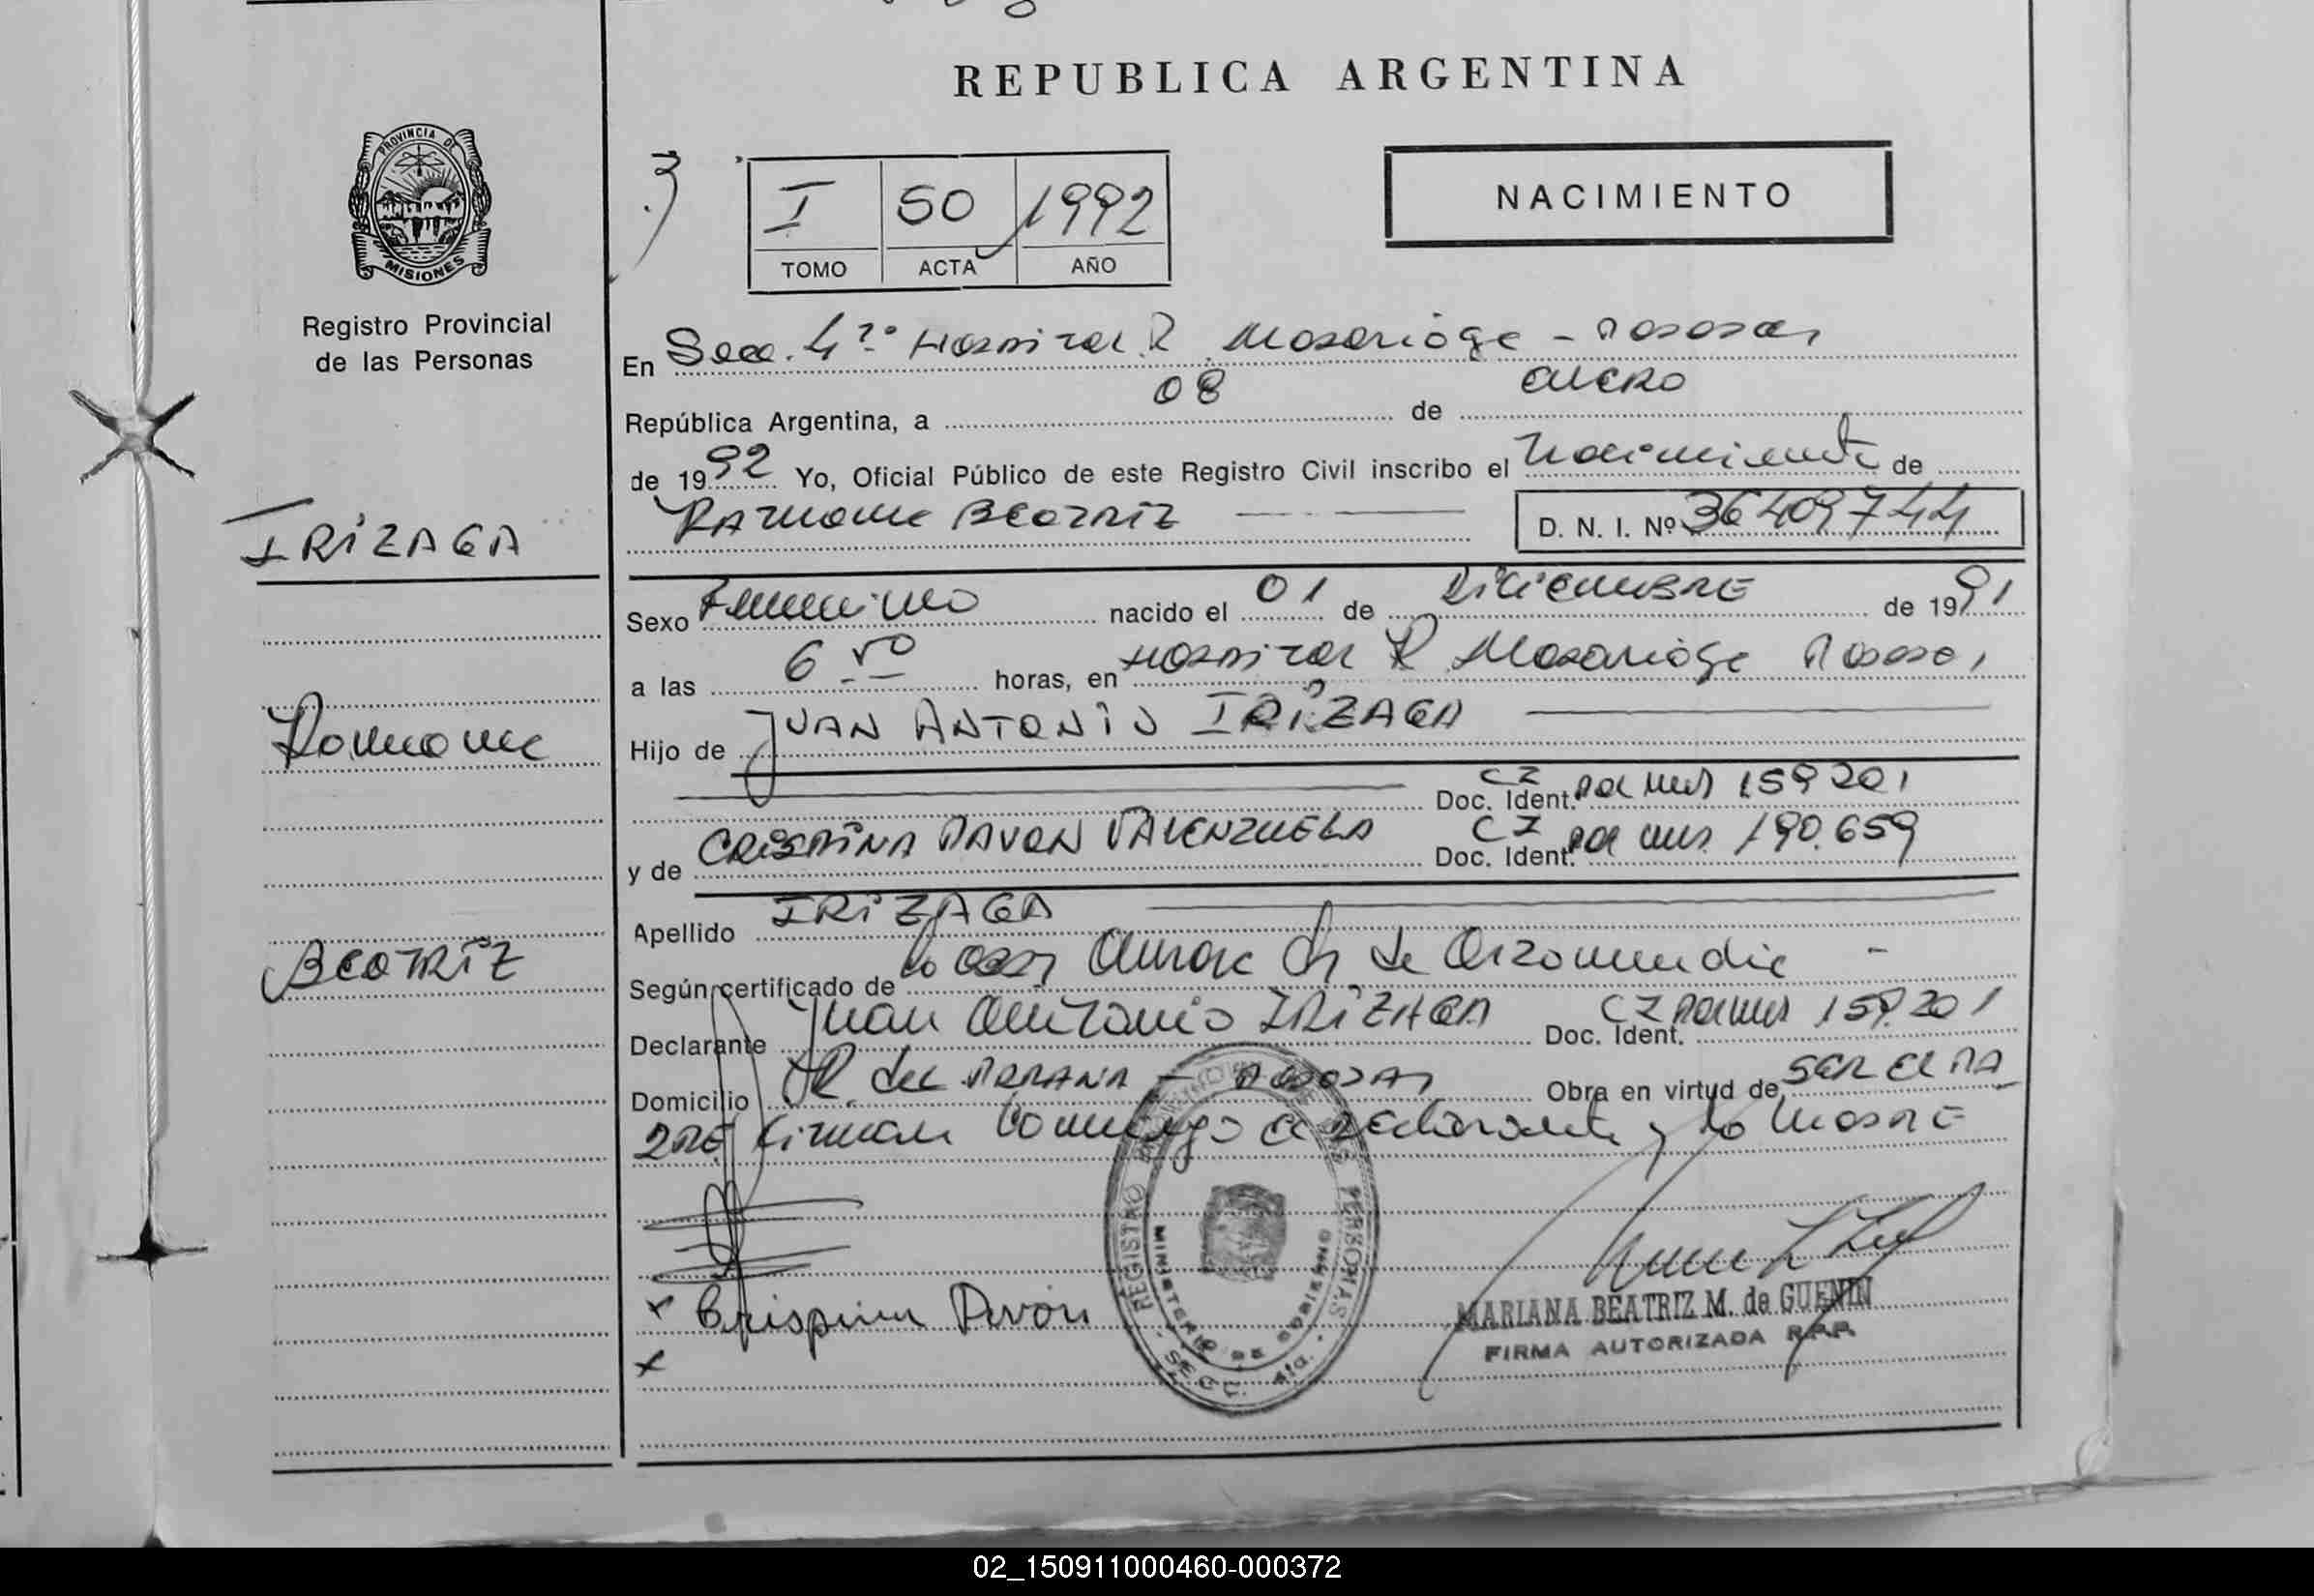 REPUBLICA ARGENTINA
PROVINCIA DE
MISIONES
Registro Provincial
de las Personas
I 50 1992
TOMO ACTA AÑO
NACIMIENTO
En Secc. 4ta Hospital R. Madariaga - Posadas
República Argentina, a 08 de enero
de 1992 Yo, Oficial Público de este Registro Civil inscribo el nacimiento de
Ramona Beatriz D. N. I. Nº 36409744
IRIZAGA
Sexo Femenino nacido el 01 de Diciembre de 1991
a las 6 50 horas, en Hospital R. Madariaga Posadas
Ramona
Hijo de JUAN ANTONIO IRIZAGA
Doc. Ident. CI Pol Mns 159201
y de CRISPINA PAVON VALENZUELA Doc. Ident. CI Pol Mns. 190.659
Apellido IRIZAGA
BEATRIZ
Según certificado de la Aurora de
Declarante Juan Antonio IRIZAGA Doc. Ident. CI Pol Mns 159.201
Domicilio del PARANA - POSADAS Obra en virtud de SER EL PA
DRE firman conmigo el declarante y la MADRE
x Crispina Pavón
x
MARIANA BEATRIZ M. de GUENIN
FIRMA AUTORIZADA R.P.P.
REGISTRO PROVINCIAL DE LAS PERSONAS
MINISTERIO DE GOBIERNO
SECC. 4ta.
02_150911000460-000372